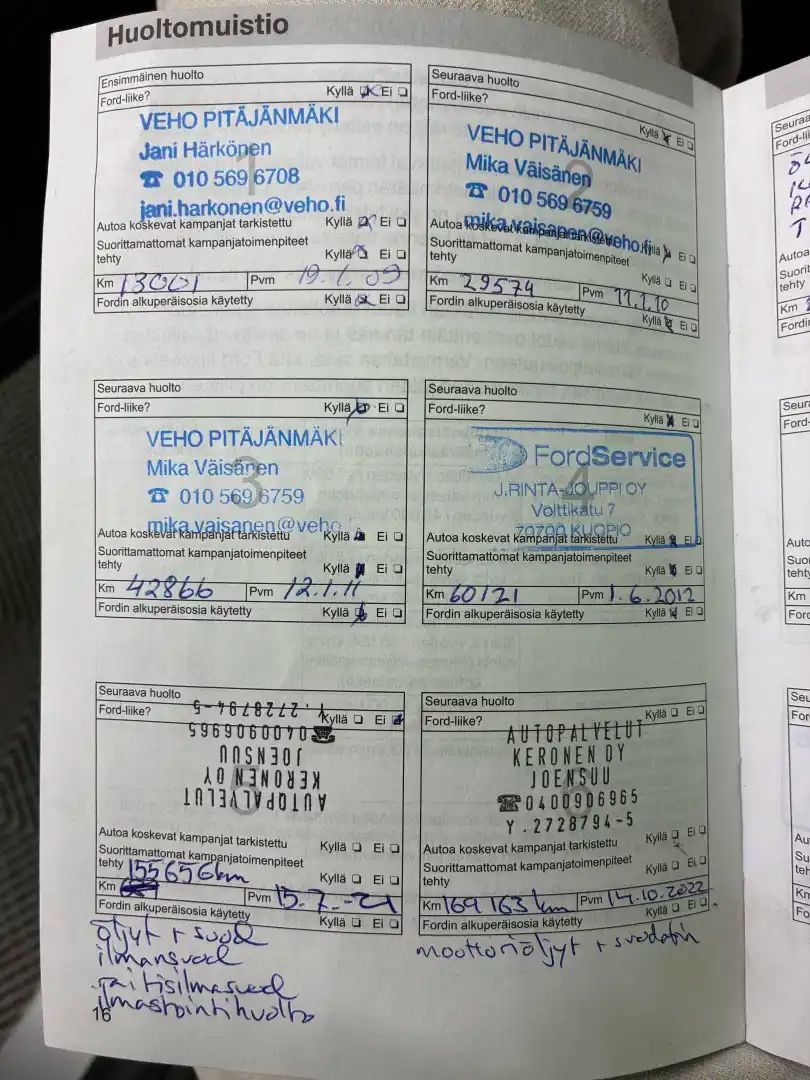 Huoltomuistio
Ensimmäinen huolto
Ford-liike? Kyllä Ei
VEHO PITÄJÄNMÄKI
Jani Härkönen
1
☎ 010 569 6708
jani.harkonen@veho.fi
Autoa koskevat kampanjat tarkistettu Kyllä Ei
Suorittamattomat kampanjatoimenpiteet
tehty Kyllä Ei
Km 13001 Pvm 19.1.09
Fordin alkuperäisosia käytetty Kyllä Ei
Seuraava huolto
Ford-liike? Kyllä Ei
VEHO PITÄJÄNMÄKI
Mika Väisänen
2
☎ 010 569 6759
mika.vaisanen@veho.fi
Autoa koskevat kampanjat tarkistettu Kyllä Ei
Suorittamattomat kampanjatoimenpiteet
tehty Kyllä Ei
Km 29574 Pvm 11.1.10
Fordin alkuperäisosia käytetty Kyllä Ei
Seuraava huolto
Ford-liike? Kyllä Ei
VEHO PITÄJÄNMÄKI
Mika Väisänen
3
☎ 010 569 6759
mika.vaisanen@veho
Autoa koskevat kampanjat tarkistettu Kyllä Ei
Suorittamattomat kampanjatoimenpiteet
tehty Kyllä Ei
Km 42866 Pvm 12.1.11
Fordin alkuperäisosia käytetty Kyllä Ei
Seuraava huolto
Ford-liike? Kyllä Ei
FordService
4
J.RINTA-JOUPPI OY
Volttikatu 7
70700 KUOPIO
Autoa koskevat kampanjat tarkistettu Kyllä Ei
Suorittamattomat kampanjatoimenpiteet
tehty Kyllä Ei
Km 60121 Pvm 1.6.2012
Fordin alkuperäisosia käytetty Kyllä Ei
Seuraava huolto
Ford-liike? Kyllä Ei
AUTOPALVELUT
KERONEN OY
JOENSUU
☎0400906965
Y.2728794-5
5
Autoa koskevat kampanjat tarkistettu Kyllä Ei
Suorittamattomat kampanjatoimenpiteet
tehty 155656km Kyllä Ei
Km Pvm 15.7.-21
Fordin alkuperäisosia käytetty Kyllä Ei
öljyt + suod
ilmansuod
raitisilmasuod
ilmastointihuolto
Seuraava huolto
Ford-liike? Kyllä Ei
AUTOPALVELUT
KERONEN OY
JOENSUU
6
☎0400906965
Y.2728794-5
Autoa koskevat kampanjat tarkistettu Kyllä Ei
Suorittamattomat kampanjatoimenpiteet
tehty Kyllä Ei
Km 169 163 km Pvm 14.10.2022
Fordin alkuperäisosia käytetty Kyllä Ei
moottoriöljyt + suodatin
16